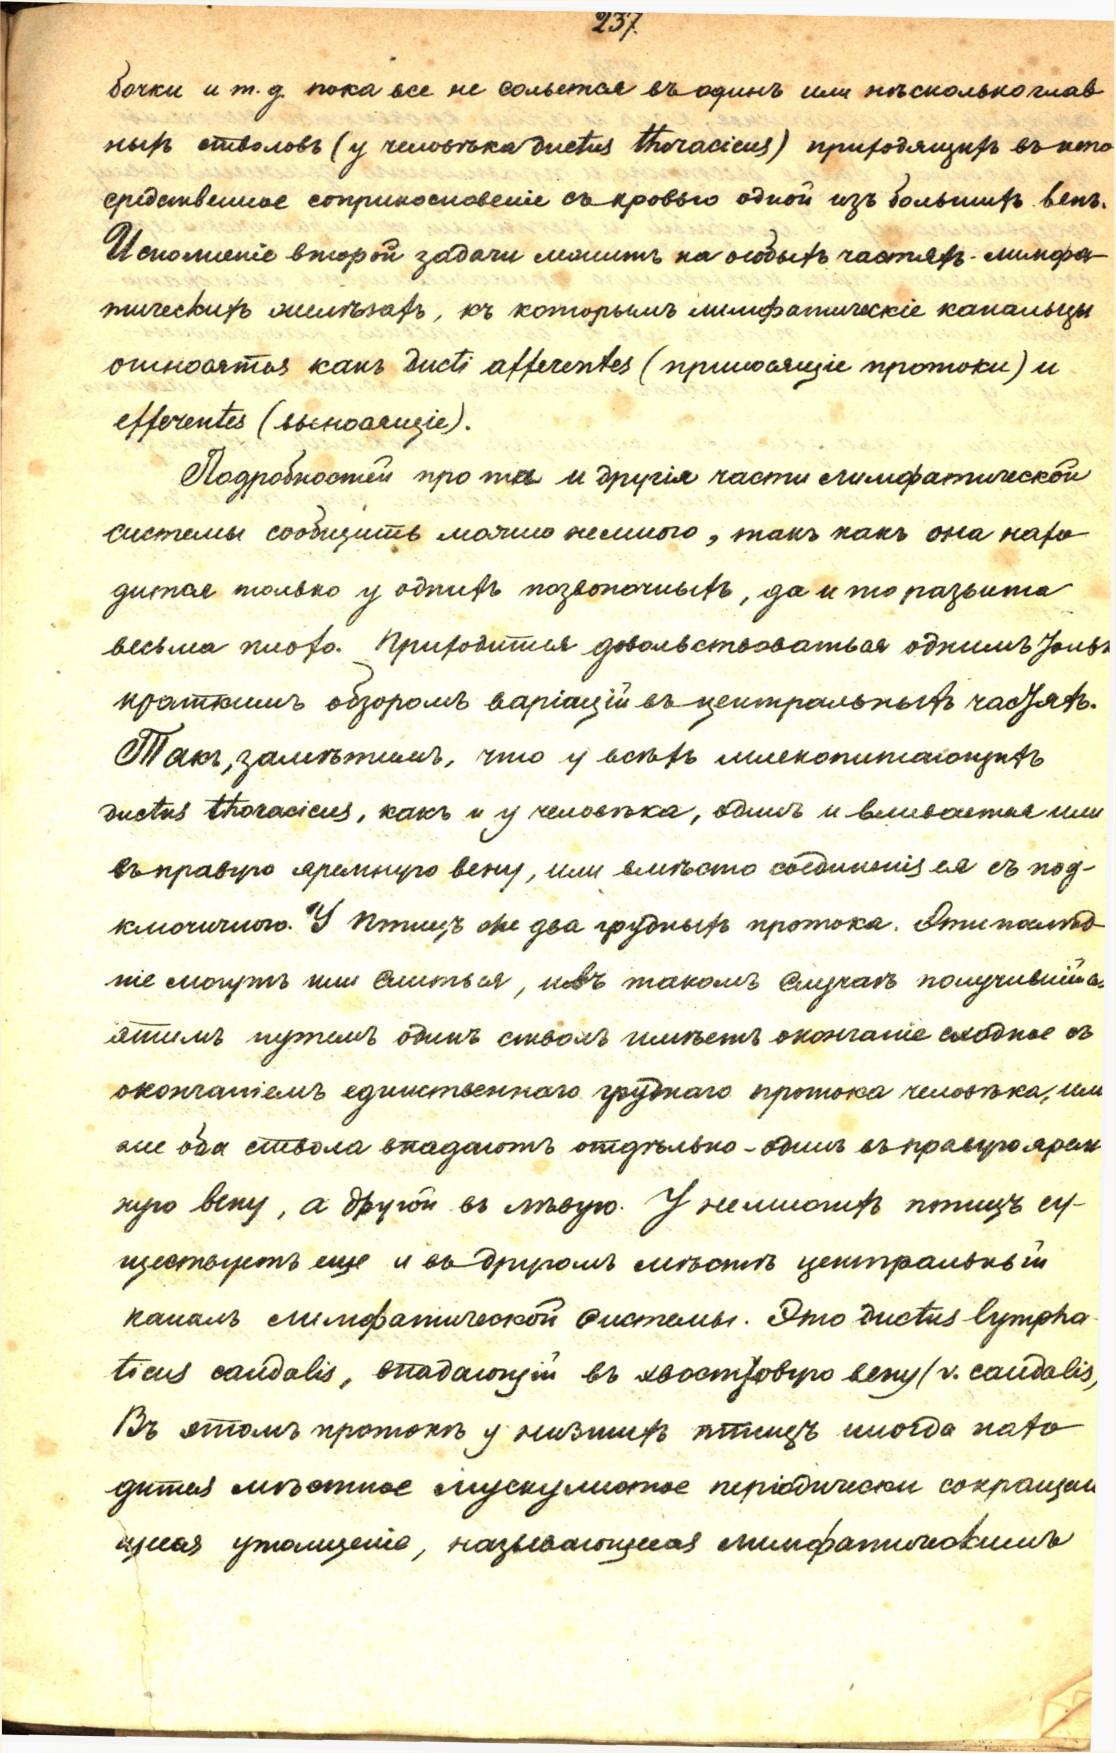 237
бочки и т.д. пока все не сольется въ одинъ или нѣсколько глав
ныхъ стволовъ (у человѣка ductus thoracicus) приходящихъ въ непо
средственное соприкосновеніе съ кровью одной изъ большихъ венъ.
Исполненіе второй задачи лежитъ на особыхъ частяхъ - лимфа-
тическихъ желѣзахъ, къ которымъ лимфатическіе канальцы
относятся какъ ducti afferentes (приносящіе протоки) и
efferentes (выносящіе).
Подробностей про те и другія части лимфатической
системы сообщить можно немного, такъ какъ она нахо
дится только у однихъ позвоночныхъ, да и то развита
весьма плохо. Приходится довольствоваться однимъ только
краткимъ обзоромъ варіацій въ центральныхъ частяхъ.
Такъ, замѣтимъ, что у всѣхъ млекопитающихъ
ductus thoracicus, какъ и у человѣка, одинъ и вливается или
въ правую яремную вену, или вмѣсто соединенія ея съ под-
ключичною. У птицъ же два грудныхъ протока. Эти послѣд
ніе могутъ или слиться, и въ такомъ случаѣ получившійся
этимъ путемъ одинъ стволъ имѣетъ окончаніе сходное съ
окончаніемъ единственнаго грудного протока человѣка, или
же оба ствола впадаютъ отдѣльно - одинъ въ правую ярем
ную вену, а другой въ лѣвую. У немногихъ птицъ су-
ществуетъ еще и въ другомъ мѣстѣ центральный
каналъ лимфатической системы. Это ductus lympha-
ticus caudalis, впадающій въ хвостовую вену (v. caudalis,
Въ этомъ протокѣ у низшихъ птицъ иногда нахо
дится мѣстное мускулистое періодически сокращаю
щееся утолщеніе, называющееся лимфатическимъ